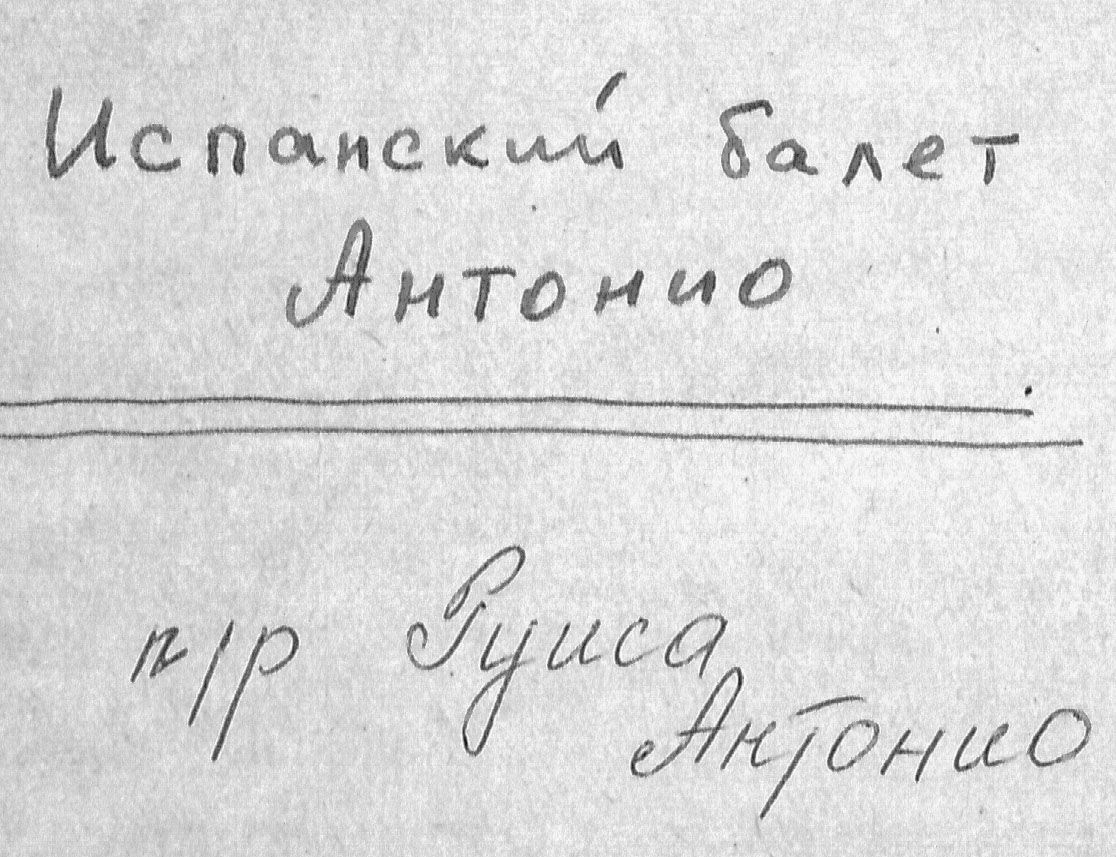 Испанский балет
Антонио
п/р Руиса
Антонио